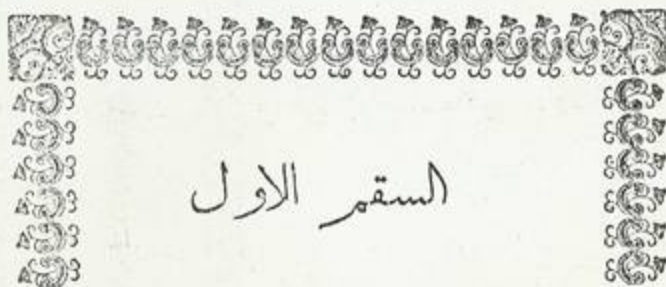 السقم الاول